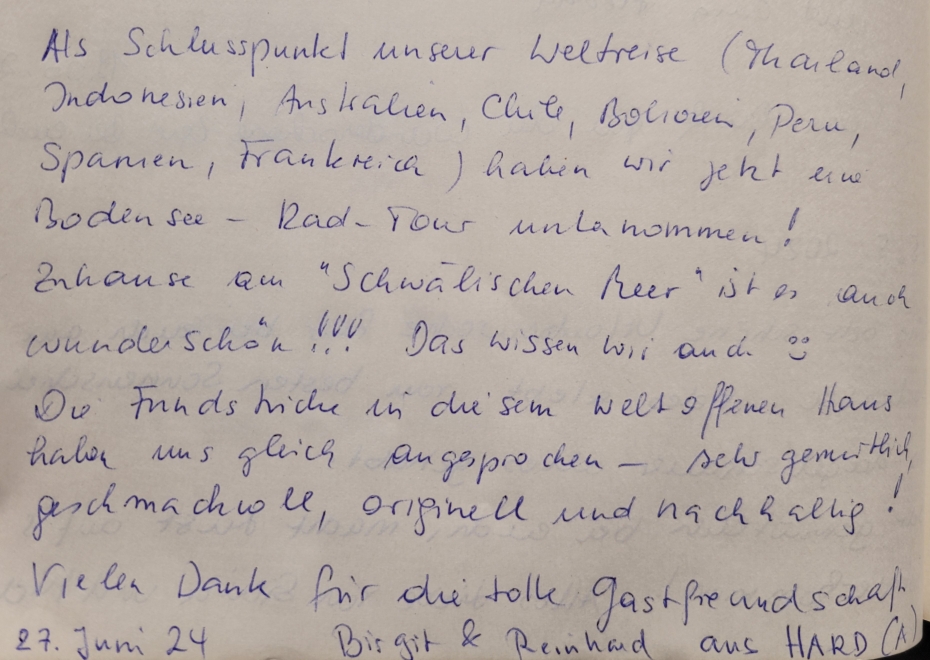 Als Schlusspunkt unserer Weltreise (Thailand,
Indonesien, Australien, Chile, Bolivien, Peru,
Spanien, Frankreich) haben wir jetzt eine
Bodensee - Rad-Tour unternommen!
Zuhause am "Schwäbischen Meer" ist es auch
wunderschön!!! Das wissen wir auch ☺
Die Fundstücke in diesem weltoffenen Haus
haben uns gleich angesprochen – sehr gemütlich,
geschmackvoll, originell und nachhaltig!
Vielen Dank für die tolle Gastfreundschaft,
27. Juni 24 Birgit & Reinhard aus HARD (A)